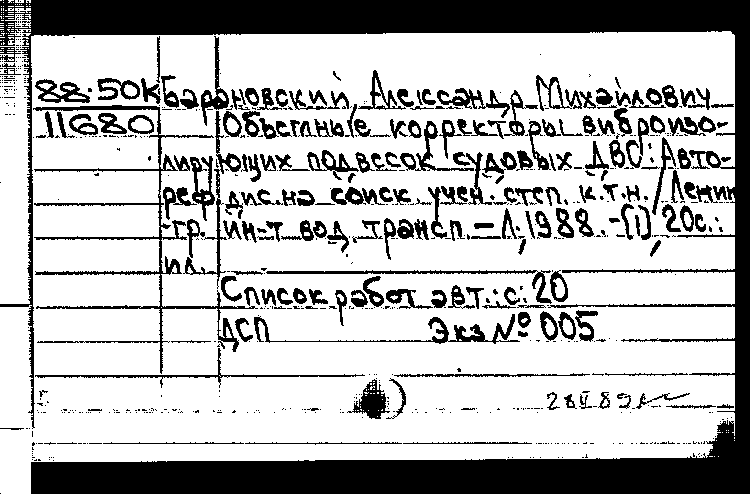 88-50К Барановский, Александр Михайлович
11680 Объемные корректоры виброизо-
лирующих подвесок судовых ДВС: Авто-
реф. дис. на соиск. учен. степ. к.т.н. / Ленингр.
ин-т вод. трансп. – Л., 1988. – [1], 20с.:
ил.
Список работ авт.: с. 20
ДСП Экз № 005